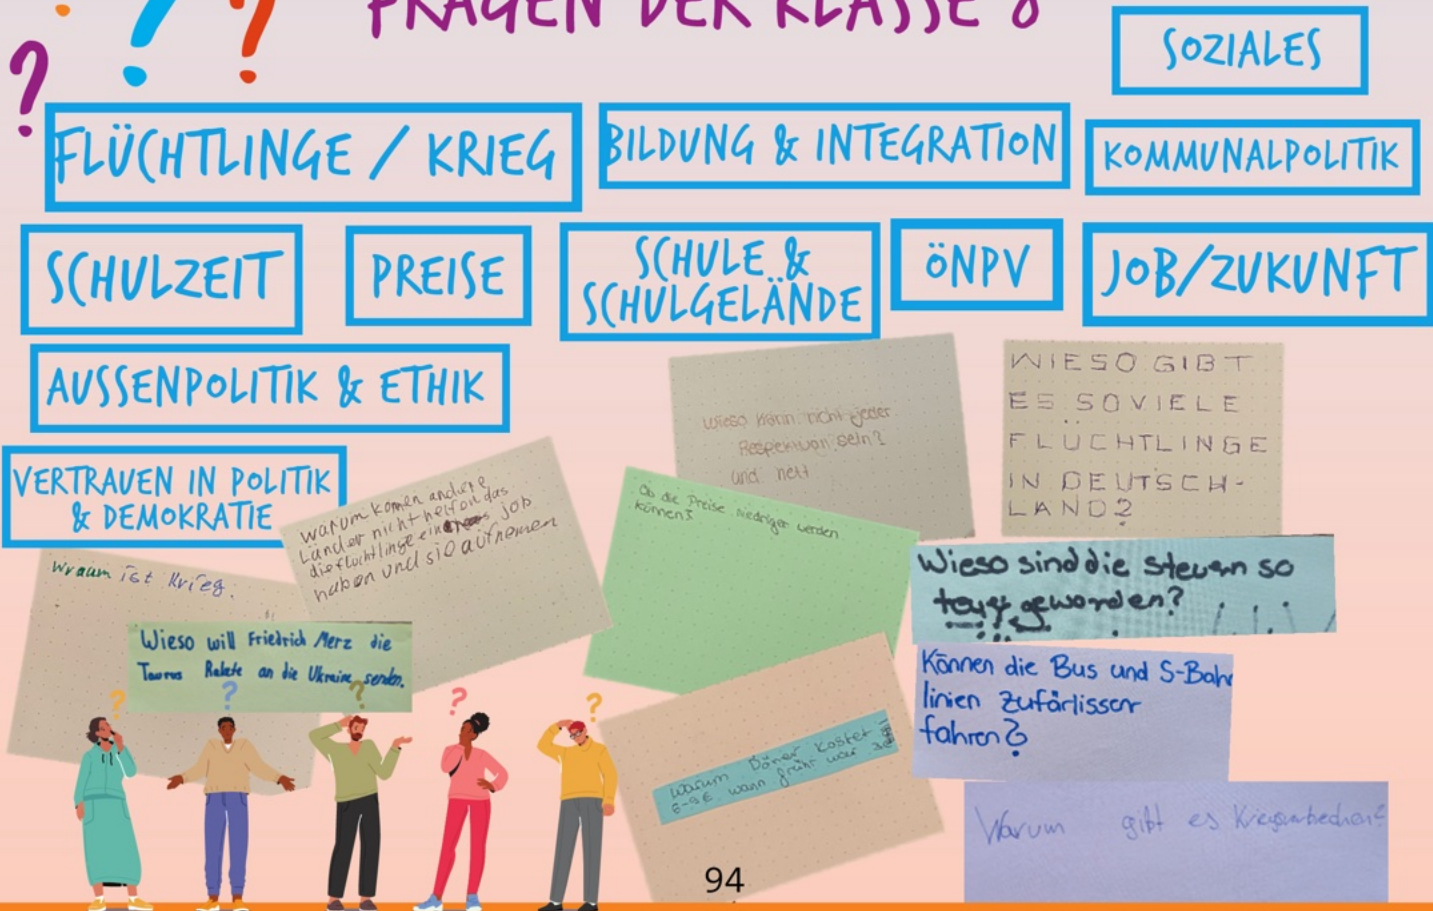 FRAGEN DER KLASSE 8
SOZIALES
FLÜCHTLINGE / KRIEG
BILDUNG & INTEGRATION
KOMMUNALPOLITIK
SCHULZEIT
PREISE
SCHULE &
SCHULGELÄNDE
ÖNPV
JOB/ZUKUNFT
AUSSENPOLITIK & ETHIK
VERTRAUEN IN POLITIK
& DEMOKRATIE
wieso kann nicht jeder
Respektvoll sein?
und nett
WIESO GIBT
ES SOVIELE
FLÜCHTLINGE
IN DEUTSCH-
LAND?
warum komen andere
Länder nicht helfen das
die flüchtlinge ein job
haben und sie aufnemen
Ob die Preise niedriger werden
können?
Wraum ist Krieg.
Wieso will Friedrich Merz die
Taurus Rakete an die Ukraine senden.
Wieso sind die steuern so
geworden?
Können die Bus und S-Bahn
linien zufärlisser
fahren?
Warum Döner kostet
6-9€ wann früher war 3€
Warum gibt es Kriegsverbechen?
94